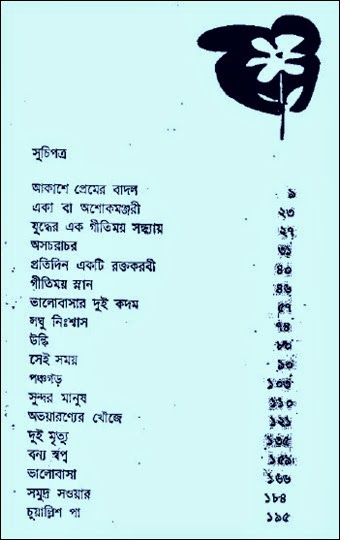 সূচিপত্র
আকাশে প্রেমের বাদল ৯
একা বা অশোকমঞ্জরী ২৩
যুদ্ধের এক গীতিময় সন্ধ্যায় ২৭
অসচরাচর ৩১
প্রতিদিন একটি রক্তকরবী ৪০
গীতিময় স্নান ৪৬
ভালোবাসার দুই কদম ৫৭
লঘু নিঃশ্বাস ৭৪
উল্কি
সেই সময়
পঞ্চগড়
সুন্দর মানুষ ১১০
অভয়ারণ্যের খোঁজে ১২১
দুই মৃত্যু ১৩৫
বন্য স্বপ্ন ১৫৯
ভালোবাসা ১৬৬
সমুদ্র সওয়ার ১৮৪
চুয়াল্লিশ পা ১৯৫